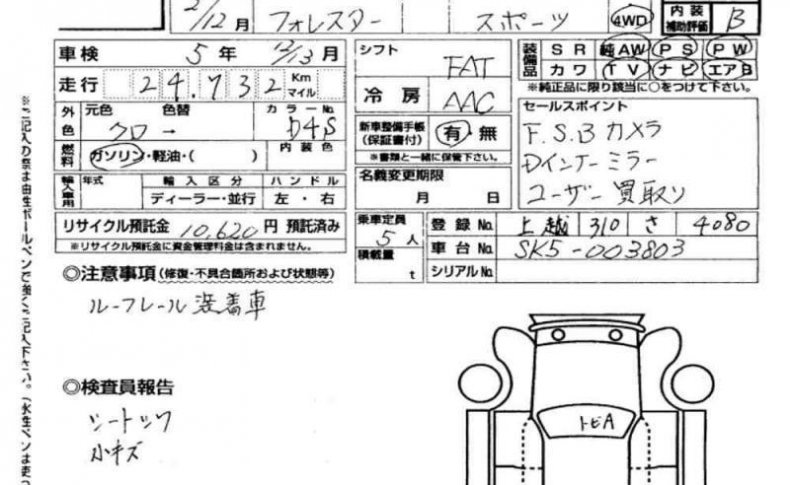 2/12月 フォレスター スポーツ 4WD 内装補助評価 B
車検 5年 12/13月 シフト FAT 装備品 SR 純AW PS PW
カワ TV ナビ エアB
※純正品に限り該当に○をつけて下さい。
走行 24,732 Km マイル 冷房 AAC
外色 元色 色替 カラーNo.
クロ → D4S
新車整備手帳(保証書付) 有・無
※書類と一緒に保管下さい。
セールスポイント
F.S.B カメラ
Dインナーミラー
ユーザー買取り
燃料 ガソリン・軽油・( ) 内装色
輸入車用 年式 輸入区分 ハンドル
ディーラー・並行 左・右
名義変更期限
月 日
リサイクル預託金 10,620円 預託済み
※リサイクル預託金に資金管理料金は含まれません。
乗車定員 5人
積載量 t
登録No. 上越 310 さ 4080
車台No. SK5-003803
シリアルNo.
◎注意事項(修復・不具合箇所および状態等)
ルーフレール装着車
◎検査員報告
シートシワ
小キズ
トビA
※ご記入の際は油性ボールペンで強くご記入下さい。(水性ペンは使